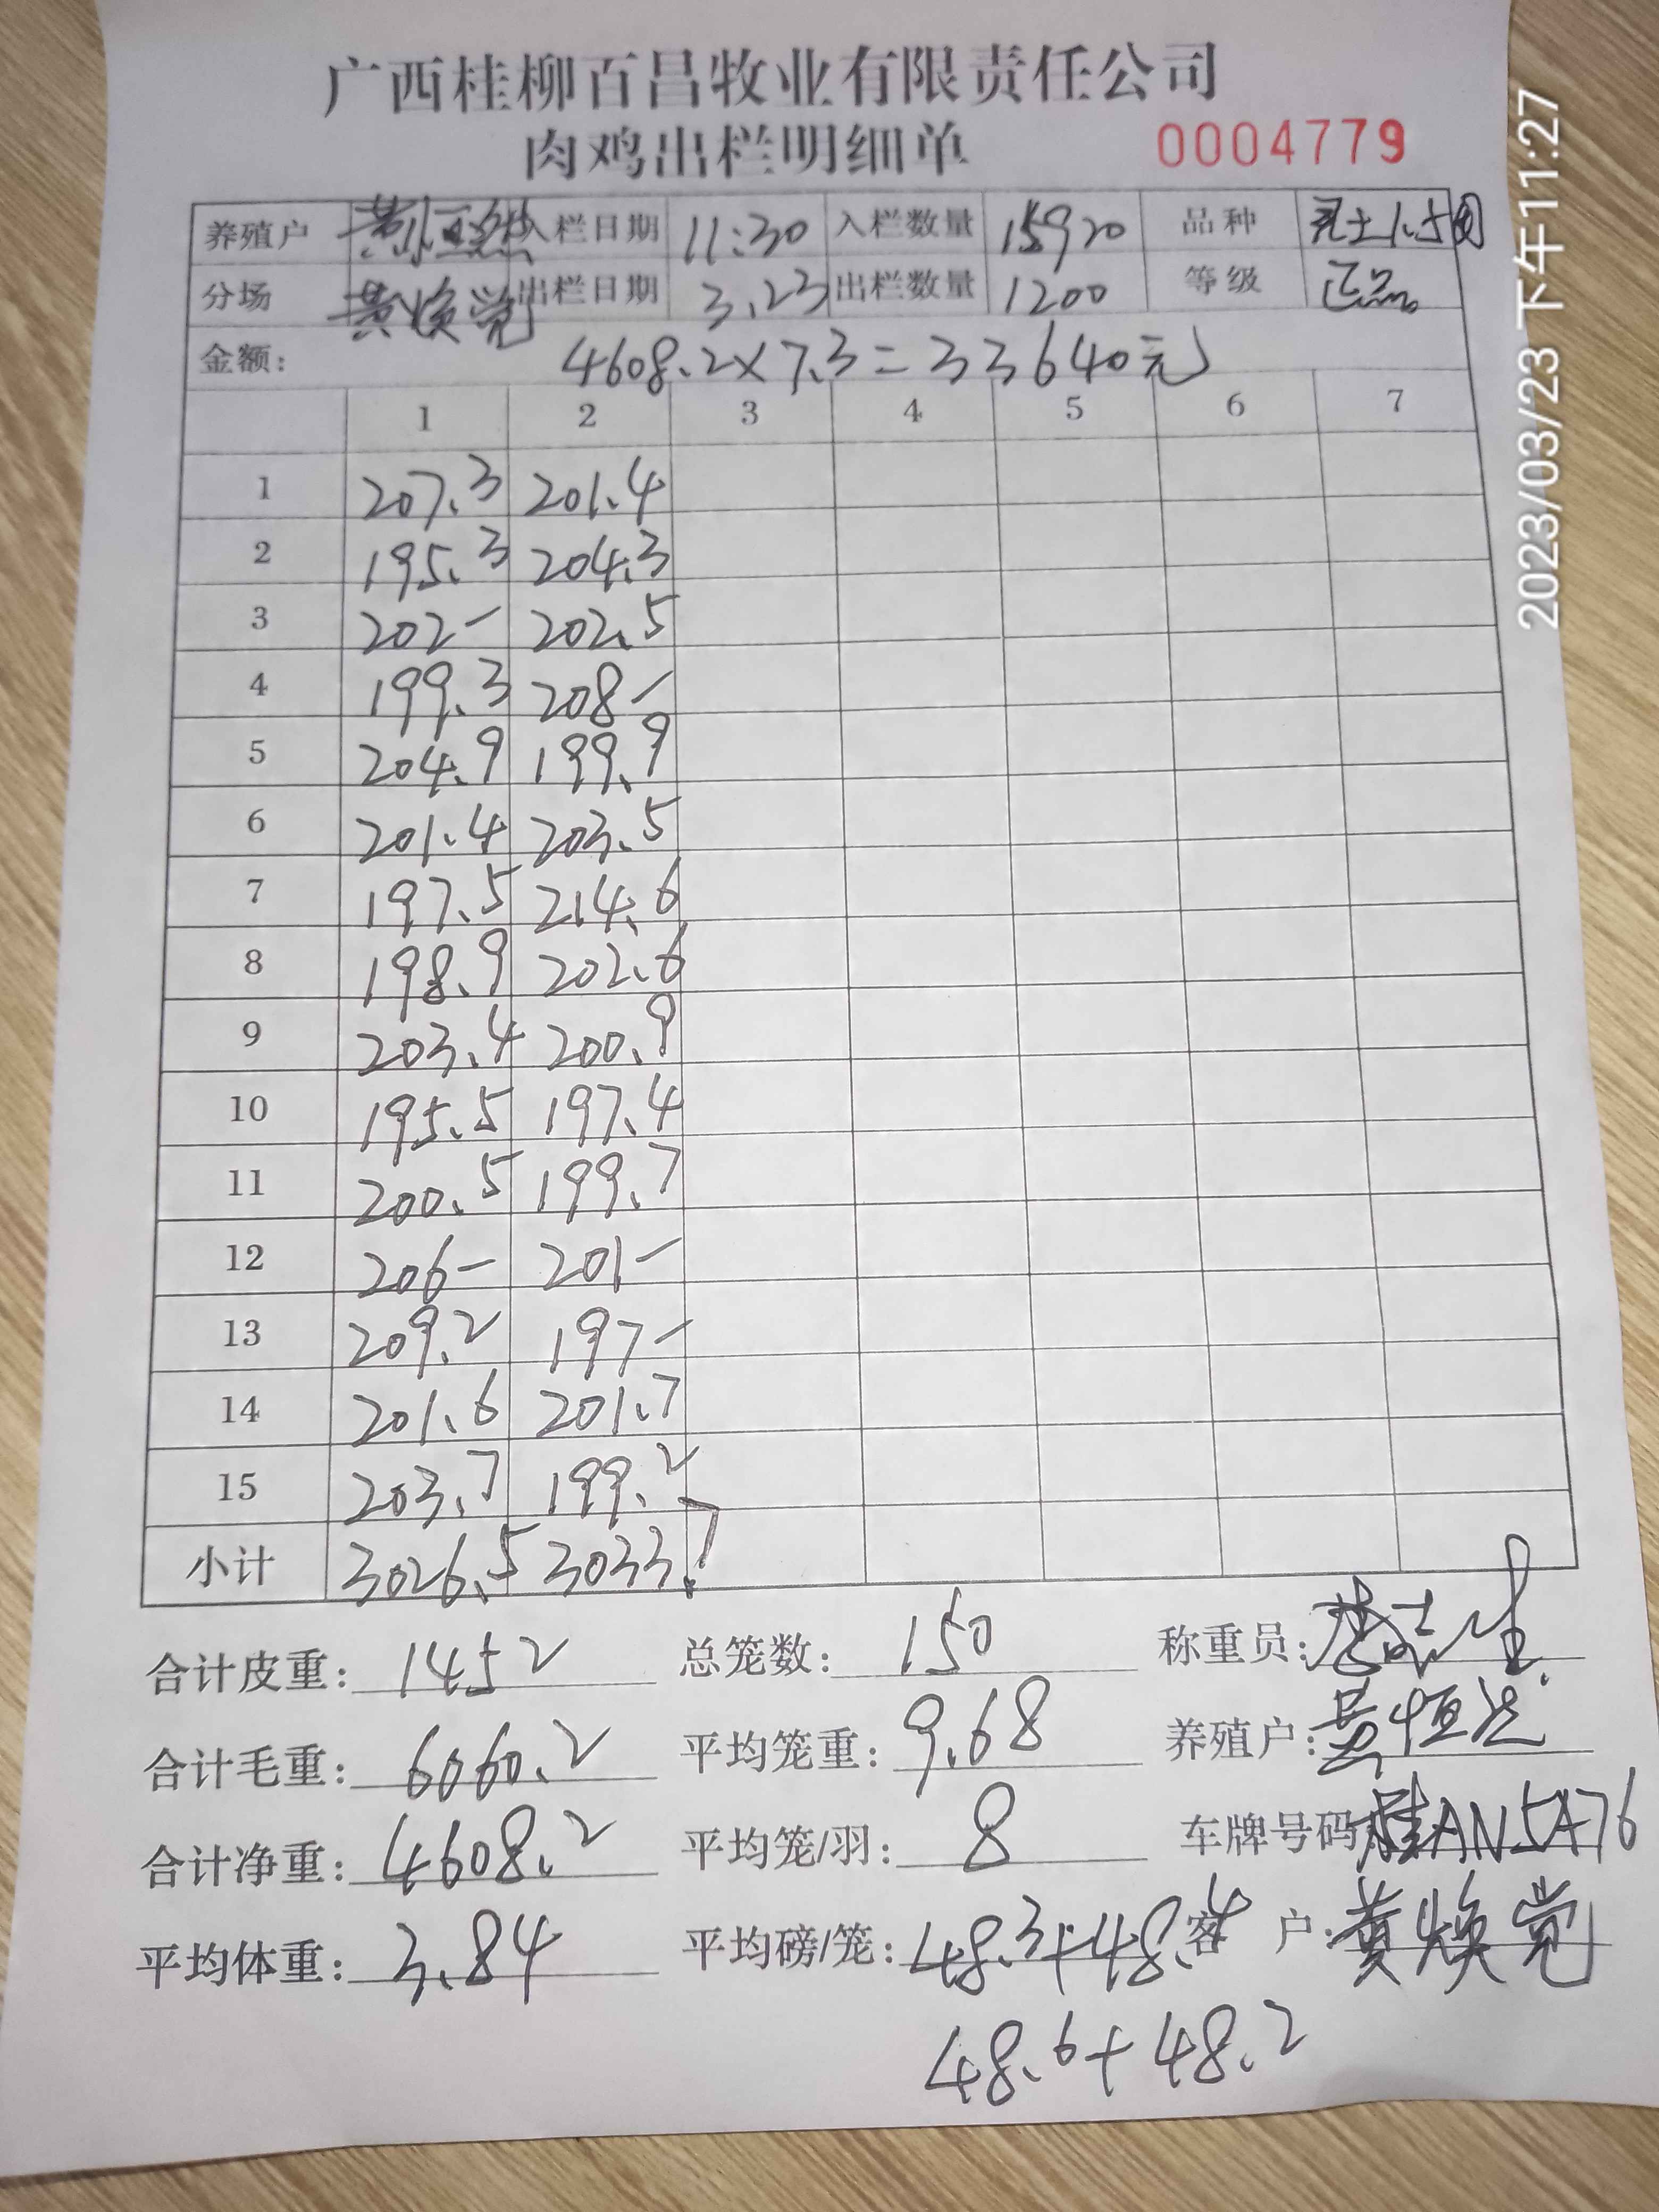 广西桂柳百昌牧业有限责任公司
肉鸡出栏明细单 0004779
养殖户 黄恒 入栏日期 11:30 入栏数量 15920 品种 土1.5
分场 黄焕党 出栏日期 3.23 出栏数量 1200 等级 正品
金额: 4608.2×7.3=33640元
1 2 3 4 5 6 7
1 207.3 201.4
2 195.3 204.3
3 202- 202.5
4 199.3 208-
5 204.9 199.9
6 201.4 203.5
7 197.5 214.6
8 198.9 202.6
9 203.4 200.9
10 195.5 197.4
11 200.5 199.7
12 206- 201-
13 209.2 197-
14 201.6 201.7
15 203.7 199.2
小计 3026.5 3033.7
合计皮重: 1452 总笼数: 150 称重员:
合计毛重: 6060.2 平均笼重: 9.68 养殖户: 黄恒
合计净重: 4608.2 平均笼/羽: 8 车牌号码: 桂AN5A76
平均体重: 3.84 平均磅/笼: 48.3+48.4 客户: 黄焕党
48.6+48.2
2023/03/23 下午11:27